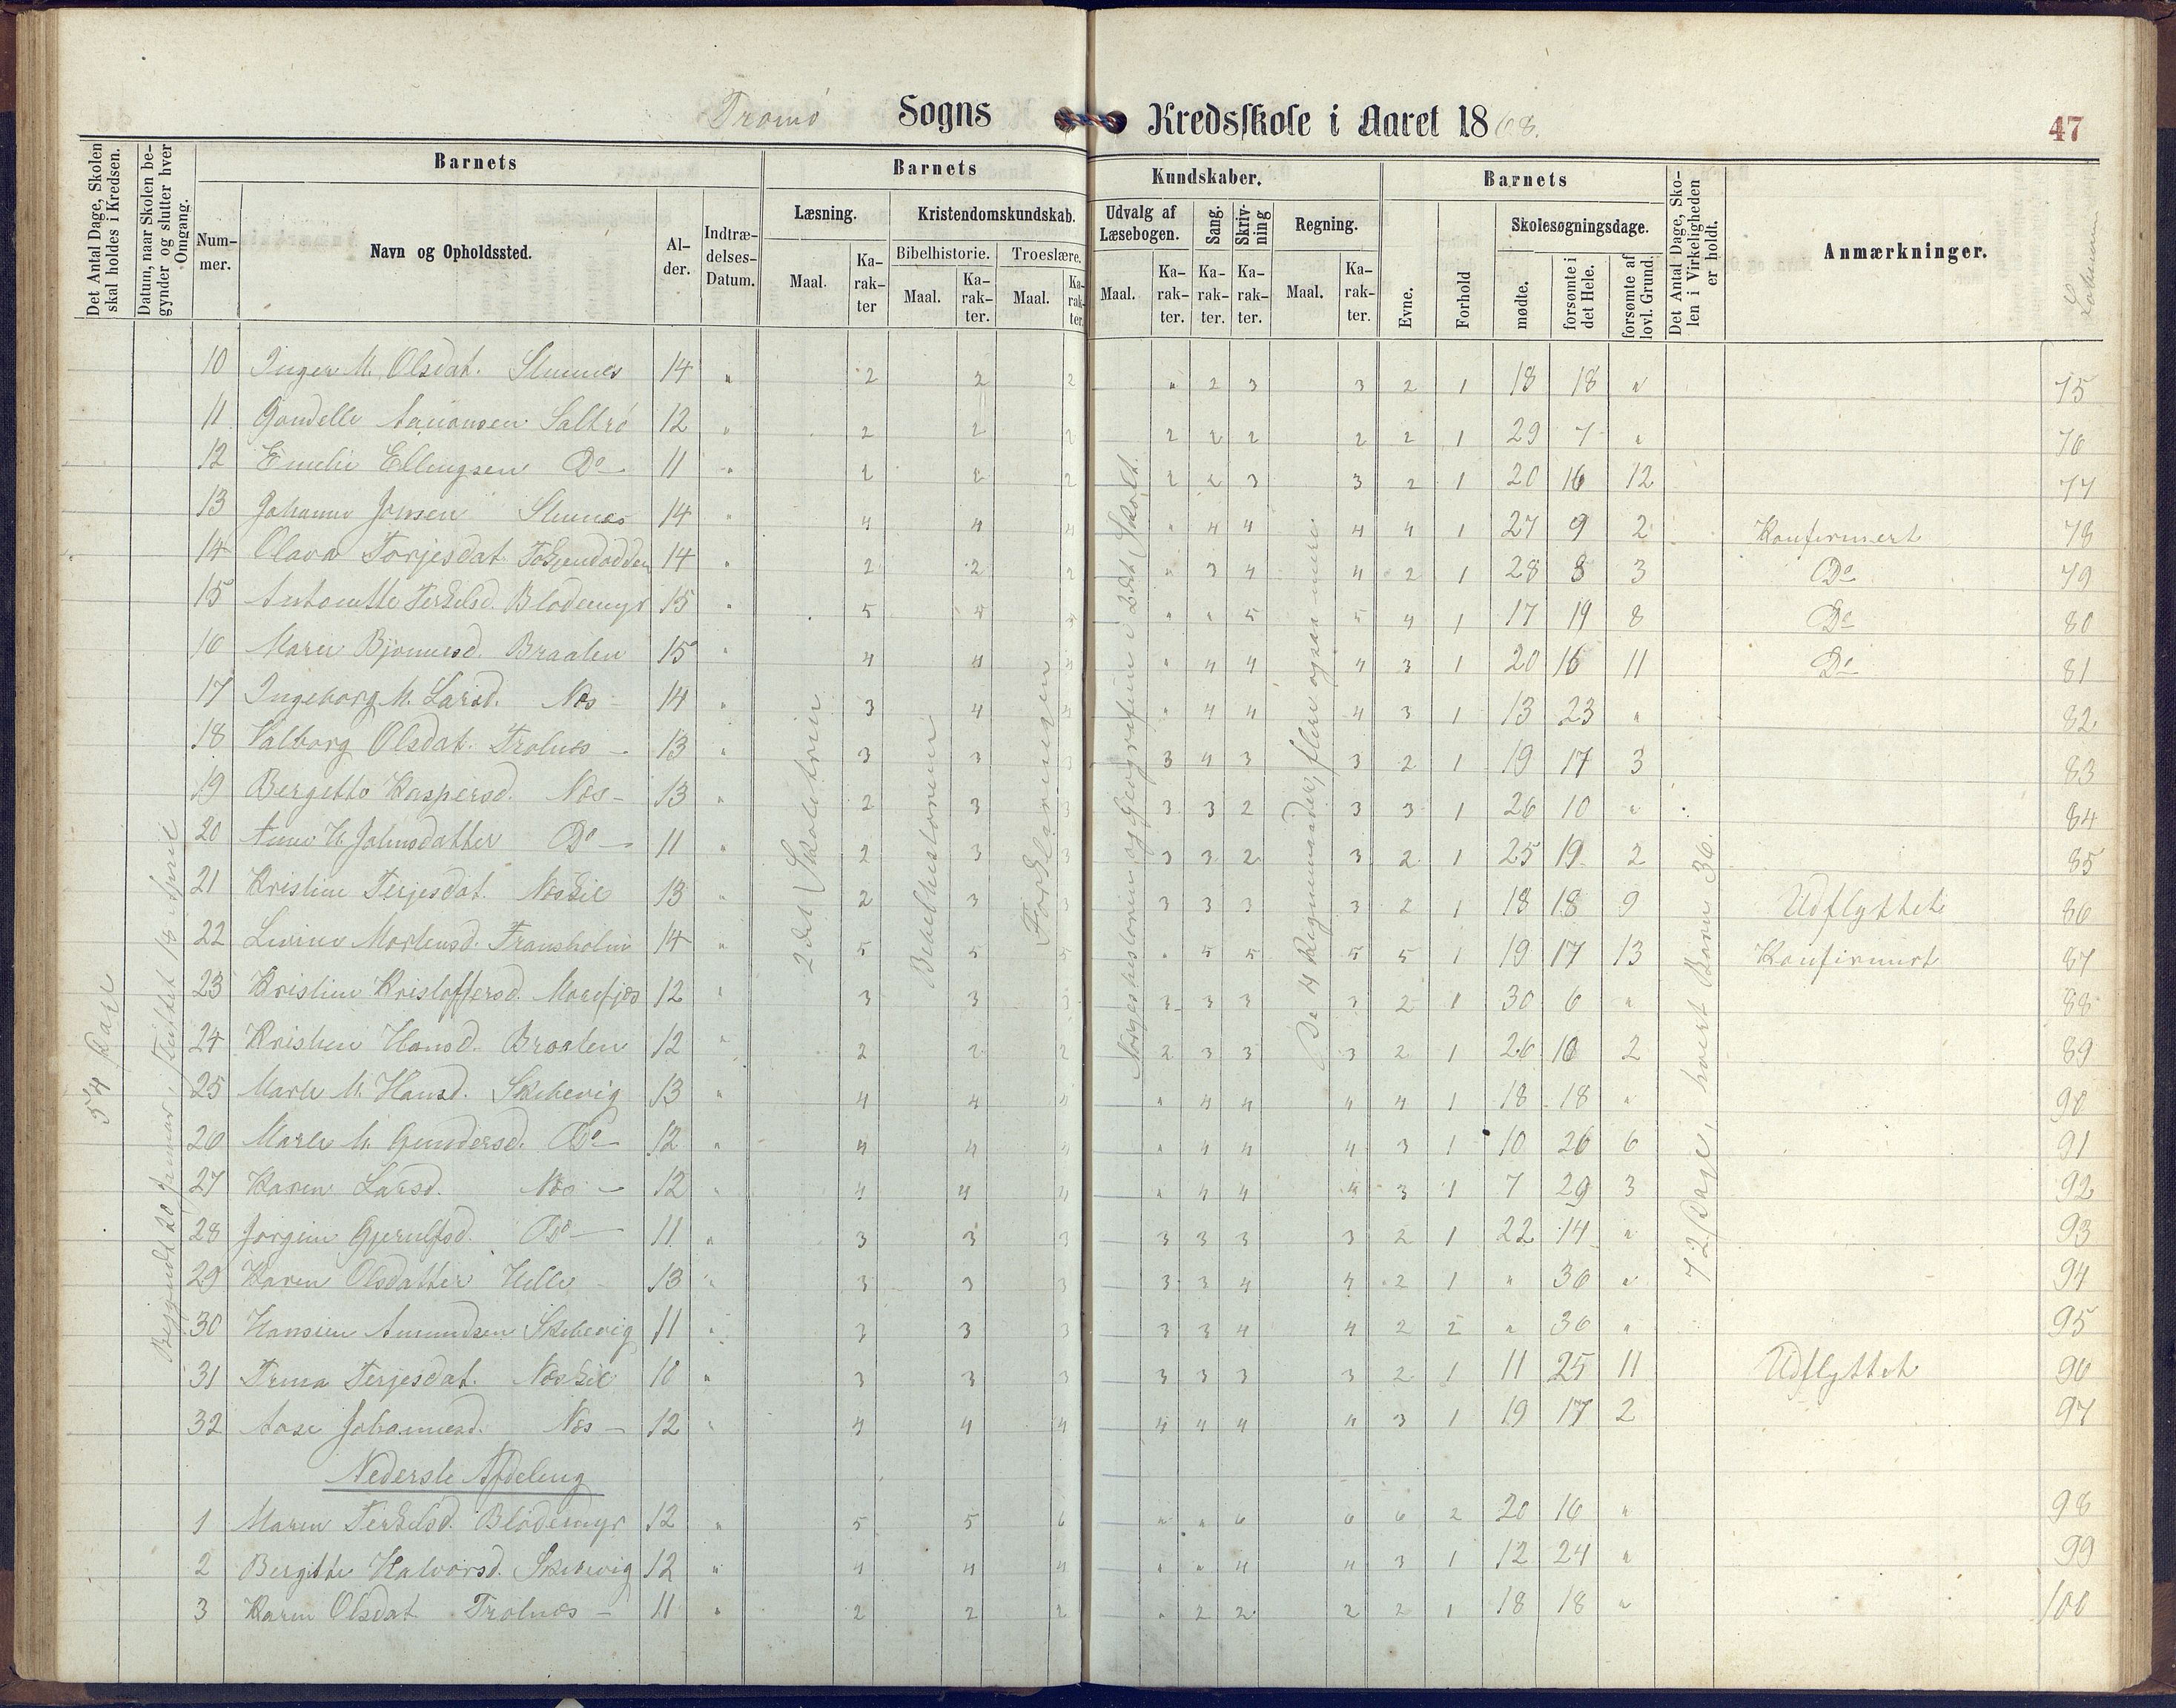 Tromö Sogns Kredsskole i Aaret 1868.
47
Det Antal Dage, Skolen skal holdes i Kredsen.
Datum, naar Skolen begynder og slutter hver Omgang.
Barnets
Num-mer.
Navn og Opholdssted.
Al-der.
Indtræ-delses-Datum.
Barnets Kundskaber.
Læsning.
Maal.
Ka-rak-ter
Kristendomskundskab.
Bibelhistorie.
Maal.
Ka-rak-ter.
Troeslære.
Maal.
Ka-rak-ter.
Udvalg af Læsebogen.
Maal.
Ka-rak-ter.
Sang.
Ka-rak-ter.
Skriv-ning
Ka-rak-ter.
Regning.
Maal.
Ka-rak-ter.
Barnets
Evne.
Forhold
Skolesøgningsdage.
mødte.
forsømte i det Hele.
forsømte af lovl. Grund.
Det Antal Dage, Sko-len i Virkeligheden er holdt.
Anmærkninger.
54 Dage
Begyndt 20 Januar, sluttet 18 April
2det Skoletrin
Bibelhistorien
Forklaringen
Norgeshistorien og Geografien i 2det Skolet.
De 4 Regningsarter, flere ogsaa mere
72 Dage, hvert Barn 36.
10 Inger M. Olsdat. Stunes 14 " 2 2 2 " 2 3 3 2 1 18 18 " 75
11 Gondelle Aanonsen Saltrö 12 " 2 2 2 2 2 2 2 2 1 29 7 " 76
12 Emelie Ellingsen Do 11 " 2 2 2 2 2 3 3 2 1 20 16 12 77
13 Johanne Jensen Stunes 14 " 4 4 4 " 4 4 4 4 1 27 9 2 Konfirmert 78
14 Olava Torjesdat. 14 " 2 2 2 " 3 4 4 2 1 28 8 3 Do 79
15 Antonette Terkelsd. Blödemyr 15 " 5 4 " " 5 5 4 1 17 19 8 Do 80
16 Maren Bjönnesd. Braaten 15 " 4 4 4 " 4 4 4 3 1 20 16 11 Do 81
17 Ingeborg M. Larsd. Næs 14 " 3 4 4 " 4 4 4 3 1 13 23 " 82
18 Valborg Olsdat. Trolnes 13 " 3 3 3 3 4 3 3 2 1 19 17 3 83
19 Bergette Kaspersd. Næs 13 " 2 3 3 3 3 2 3 3 1 26 10 " 84
20 Anne H. Johnsdatter Do 11 " 2 3 3 3 3 2 3 2 1 25 19 2 85
21 Kristine Terjesdat. Næskil 13 " 2 3 3 3 3 3 3 2 1 18 18 9 Udflyttet 86
22 Lovine Mortensd. Fransholm 14 " 5 5 5 " 5 5 5 5 1 19 17 13 Konfirmert 87
23 Kristine Kristoffersd. Morefjæs 12 " 3 3 3 3 3 3 3 2 1 30 6 " 88
24 Kristine Hansd. Braaten 12 " 2 2 2 2 3 3 3 2 1 26 10 2 89
25 Marte M. Hansd. Skibevig 13 " 4 4 4 " 4 4 4 4 1 18 18 " 90
26 Marte M. Gundersd. Do 12 " 4 4 4 " 4 4 4 3 1 10 26 6 91
27 Karen Larsd. Næs 12 " 4 4 4 " 4 4 4 3 1 7 29 3 92
28 Jorgine Gjerulfsd. Do 11 " 3 3 3 3 3 3 3 2 1 22 14 " 93
29 Karen Olsdatter Helle 13 " 3 3 3 3 3 4 4 2 1 " 36 " 94
30 Hansine Amundsen Skibevig 11 " 3 3 3 3 3 4 4 2 2 " 36 " 95
31 Trina Terjesdat. Næskil 10 " 3 3 3 3 3 3 3 2 1 11 25 11 Udflyttet 96
32 Aase Johannesd. Næs 12 " 4 4 4 4 4 4 4 3 1 19 17 2 97
Nederste Afdeling
1 Maren Terkelsd. Blödemyr 12 " 5 5 6 " " 6 6 6 2 20 16 " 98
2 Bergitte Halvorsd. Skibevig 12 " 4 4 4 " " 4 4 3 1 12 24 " 99
3 Karen Olsdat. Trolnes 11 " 2 2 2 " 2 2 2 2 1 18 18 " 100